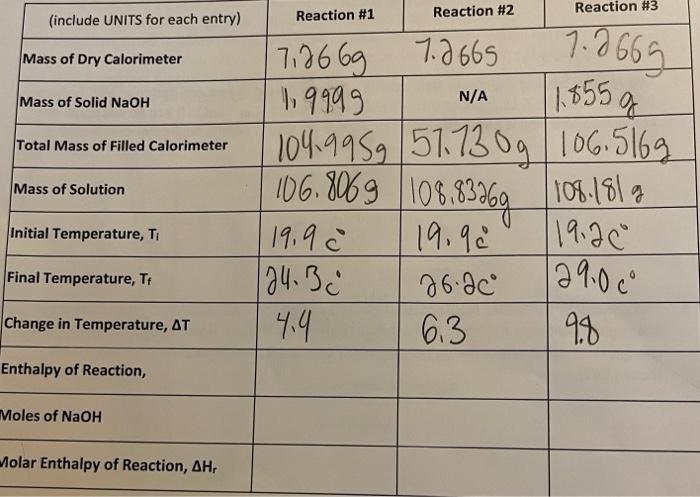 (include UNITS for each entry) Reaction #1 Reaction #2 Reaction #3
Mass of Dry Calorimeter 7.266g 7.266g 7.266g
Mass of Solid NaOH 1.999g N/A 1.855g
Total Mass of Filled Calorimeter 104.995g 57.730g 106.516g
Mass of Solution 106.806g 108.8326g 108.181g
Initial Temperature, Ti 19.9c° 19.9c° 19.2c°
Final Temperature, Tf 24.3c° 26.2c° 29.0c°
Change in Temperature, ΔT 4.4 6.3 9.8
Enthalpy of Reaction,
Moles of NaOH
Molar Enthalpy of Reaction, ΔHr